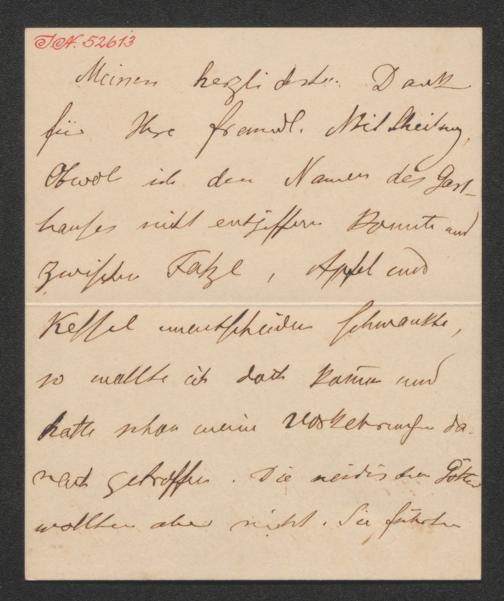 I.N. 52613
Meinen herzlichsten Dank
für Ihre freundl. Mittheilung,
Obwol ich den Namen des Gast-
hauses nicht entziffern konnte und
zwischen Fatzl, Apfel und
Kessel unentschieden schwankte,
so wollte ich doch kommen und
hatte schon meine Vorkehrungen da-
nach getroffen. Die neidischen Götter
wollten aber nicht. Sie führten